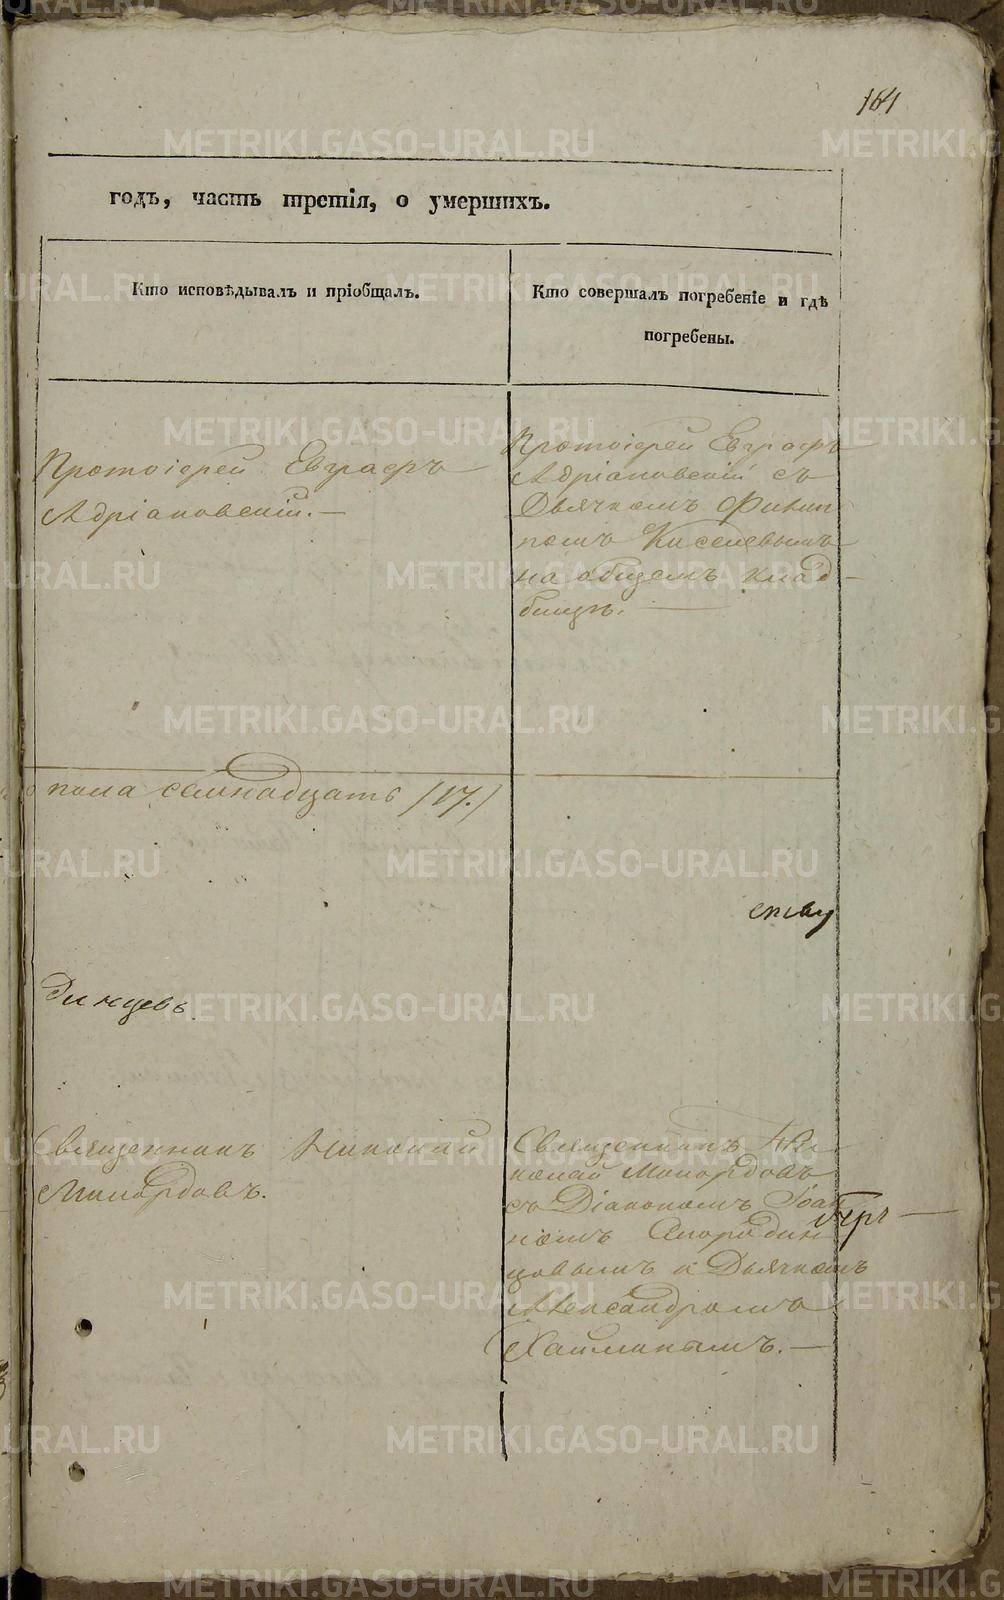 164
годъ, часть третія, о умершихъ.
Кто исповѣдывалъ и пріобщалъ.
Кто совершалъ погребеніе и гдѣ
погребены.
Протоіерей Евграфъ
Адріановскій.—
Протоіерей Евграфъ
Адріановскій съ
Дьячкомъ Филип
помъ Киселевымъ
на общемъ клад-
бищѣ.
пола семнадцать /17./
динцевъ
Священникъ Николай
Милордовъ.
Священникъ Ни
колай Милордовъ
съ Діакономъ Іоан
номъ Смородин
цовымъ и Дьячкомъ
Александромъ
Хайминымъ.—
METRIKI.GASO-URAL.RU